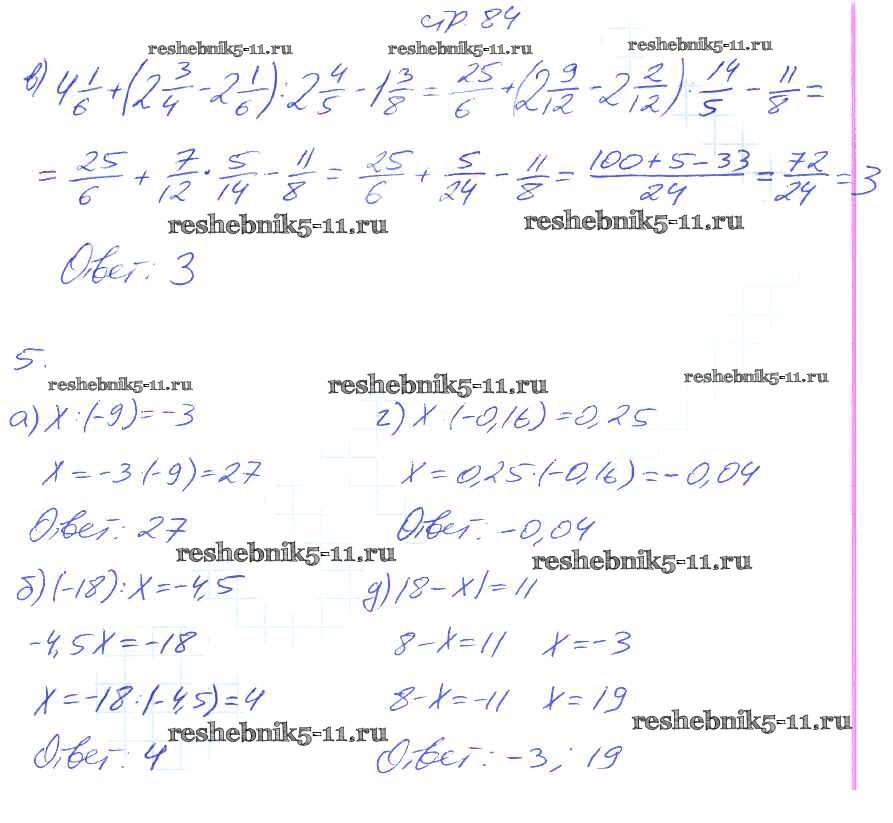 стр. 84
reshebnik5-11.ru reshebnik5-11.ru reshebnik5-11.ru
в) 4 1/6 + (2 3/4 - 2 1/6) : 2 4/5 - 1 3/8 = 25/6 + (2 9/12 - 2 2/12) : 14/5 - 11/8 =
= 25/6 + 7/12 · 5/14 - 11/8 = 25/6 + 5/24 - 11/8 = 100+5-33/24 = 72/24 = 3
reshebnik5-11.ru reshebnik5-11.ru
Ответ: 3
5.
reshebnik5-11.ru reshebnik5-11.ru reshebnik5-11.ru
а) x : (-9) = -3 г) x : (-0,16) = 0,25
x = -3 · (-9) = 27 x = 0,25 · (-0,16) = -0,04
Ответ: 27 Ответ: -0,04
reshebnik5-11.ru reshebnik5-11.ru
б) (-18) : x = -4,5 д) |8 - x| = 11
-4,5x = -18 8 - x = 11 x = -3
x = -18 : (-4,5) = 4 8 - x = -11 x = 19
reshebnik5-11.ru reshebnik5-11.ru
Ответ: 4 Ответ: -3; 19